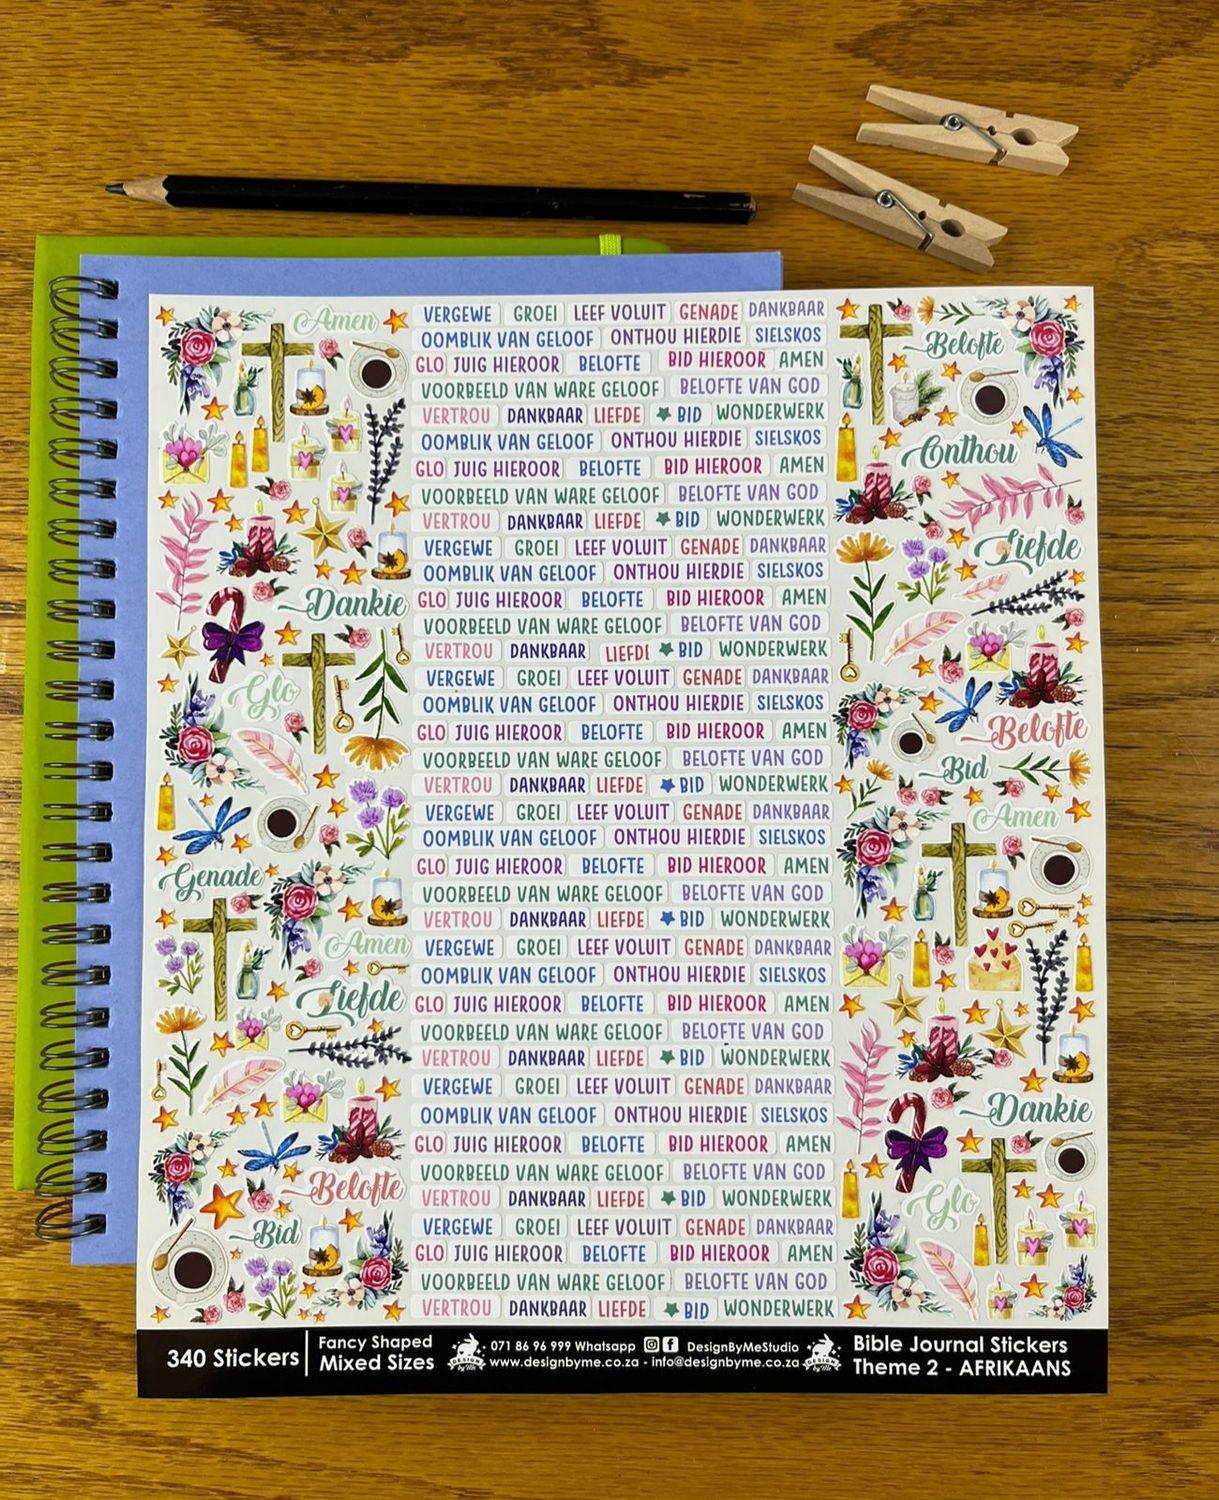 Amen
Dankie
Glo
Genade
Amen
Liefde
Belofte
Bid
VERGEWE GROEI LEEF VOLUIT GENADE DANKBAAR
OOMBLIK VAN GELOOF ONTHOU HIERDIE SIELSKOS
GLO JUIG HIEROOR BELOFTE BID HIEROOR AMEN
VOORBEELD VAN WARE GELOOF BELOFTE VAN GOD
VERTROU DANKBAAR LIEFDE BID WONDERWERK
OOMBLIK VAN GELOOF ONTHOU HIERDIE SIELSKOS
GLO JUIG HIEROOR BELOFTE BID HIEROOR AMEN
VOORBEELD VAN WARE GELOOF BELOFTE VAN GOD
VERTROU DANKBAAR LIEFDE BID WONDERWERK
VERGEWE GROEI LEEF VOLUIT GENADE DANKBAAR
OOMBLIK VAN GELOOF ONTHOU HIERDIE SIELSKOS
GLO JUIG HIEROOR BELOFTE BID HIEROOR AMEN
VOORBEELD VAN WARE GELOOF BELOFTE VAN GOD
VERTROU DANKBAAR LIEFDE BID WONDERWERK
VERGEWE GROEI LEEF VOLUIT GENADE DANKBAAR
OOMBLIK VAN GELOOF ONTHOU HIERDIE SIELSKOS
GLO JUIG HIEROOR BELOFTE BID HIEROOR AMEN
VOORBEELD VAN WARE GELOOF BELOFTE VAN GOD
VERTROU DANKBAAR LIEFDE BID WONDERWERK
VERGEWE GROEI LEEF VOLUIT GENADE DANKBAAR
OOMBLIK VAN GELOOF ONTHOU HIERDIE SIELSKOS
GLO JUIG HIEROOR BELOFTE BID HIEROOR AMEN
VOORBEELD VAN WARE GELOOF BELOFTE VAN GOD
VERTROU DANKBAAR LIEFDE BID WONDERWERK
VERGEWE GROEI LEEF VOLUIT GENADE DANKBAAR
OOMBLIK VAN GELOOF ONTHOU HIERDIE SIELSKOS
GLO JUIG HIEROOR BELOFTE BID HIEROOR AMEN
VOORBEELD VAN WARE GELOOF BELOFTE VAN GOD
VERTROU DANKBAAR LIEFDE BID WONDERWERK
VERGEWE GROEI LEEF VOLUIT GENADE DANKBAAR
OOMBLIK VAN GELOOF ONTHOU HIERDIE SIELSKOS
GLO JUIG HIEROOR BELOFTE BID HIEROOR AMEN
VOORBEELD VAN WARE GELOOF BELOFTE VAN GOD
VERTROU DANKBAAR LIEFDE BID WONDERWERK
VERGEWE GROEI LEEF VOLUIT GENADE DANKBAAR
GLO JUIG HIEROOR BELOFTE BID HIEROOR AMEN
VOORBEELD VAN WARE GELOOF BELOFTE VAN GOD
VERTROU DANKBAAR LIEFDE BID WONDERWERK
Belofte
Onthou
Liefde
Belofte
Bid
Amen
Dankie
Glo
340 Stickers
Fancy Shaped
Mixed Sizes
DESIGN
by Me
071 86 96 999 Whatsapp DesignByMeStudio
www.designbyme.co.za - info@designbyme.co.za
DESIGN
by Me
Bible Journal Stickers
Theme 2 - AFRIKAANS